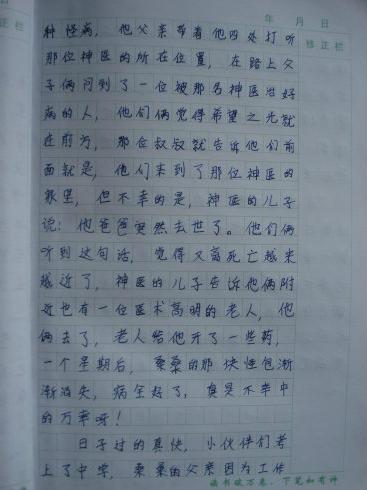 年 月 日
修正栏
种怪病，他父亲带着他四处打听
那位神医的所在位置，在路上父
子俩问到了一位被那名神医治好
病的人，他们俩觉得希望之光就
在前方，那位叔叔就告诉他们前
面就是，他们来到了那位神医的
但不幸的是，神医的儿子
说：他爸爸突然去世了。他们俩
听到这句话，觉得又离死亡越来
越近了，神医的儿子告诉他俩附
近也有一位医术高明的老人，他
俩去了，老人给他开了一些药，
一个星期后，桑桑的那块怪包渐
渐消失，病全好了，真是不幸中
的万幸呀！
日子过的真快，小伙伴们考
上了中学，桑桑的父亲因为工作
读书破万卷，下笔如有神